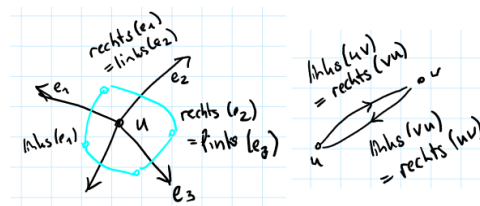 rechts(e₁)
= links(e₂)
e₁
e₂
links(e₁)
u
rechts(e₂)
= links(e₃)
e₃
links(uv)
= rechts(vu)
v
u
links(vu)
= rechts(uv)